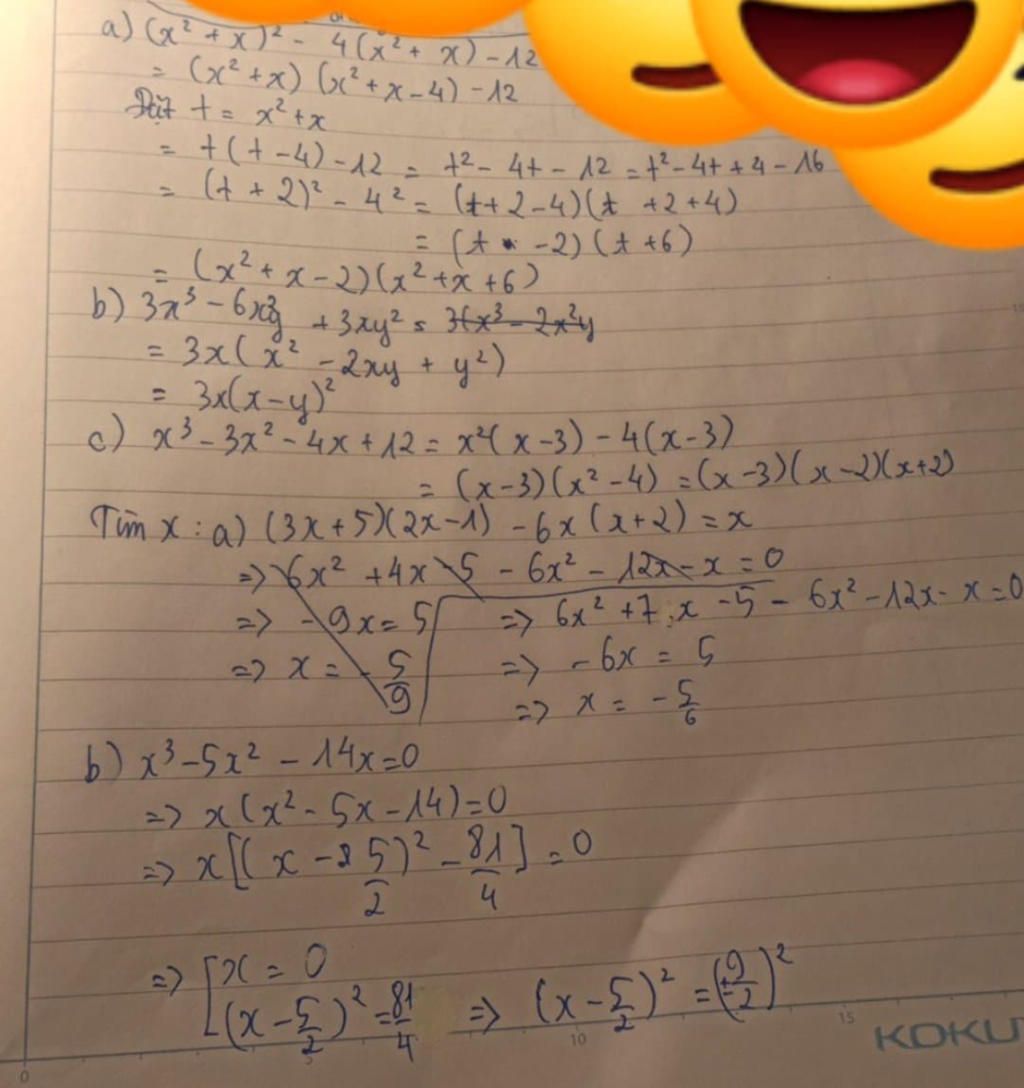 a) (x² + x)² - 4(x² + x) - 12
= (x² + x) (x² + x - 4) - 12
Đặt t = x² + x
= t(t - 4) - 12 = t² - 4t - 12 = t² - 4t + 4 - 16
= (t + 2)² - 4² = (t + 2 - 4)(t + 2 + 4)
= (t - 2) (t + 6)
= (x² + x - 2)(x² + x + 6)
b) 3x³ - 6x²y + 3xy² = 3(x³ - 2x²y
= 3x(x² - 2xy + y²)
= 3x(x - y)²
c) x³ - 3x² - 4x + 12 = x²(x - 3) - 4(x - 3)
= (x - 3)(x² - 4) = (x - 3)(x - 2)(x + 2)
Tìm x : a) (3x + 5)(2x - 1) - 6x(x + 2) = x
=> 6x² + 4x - 5 - 6x² - 12x - x = 0
=> - 9x = 5
=> x = - 5/9
=> 6x² + 7x - 5 - 6x² - 12x - x = 0
=> - 6x = 5
=> x = - 5/6
b) x³ - 5x² - 14x = 0
=> x(x² - 5x - 14) = 0
=> x[(x - 5/2)² - 81/4] = 0
=> [x = 0
(x - 5/2)² = 81/4 => (x - 5/2)² = (± 9/2)²
0
10
15
KOKU